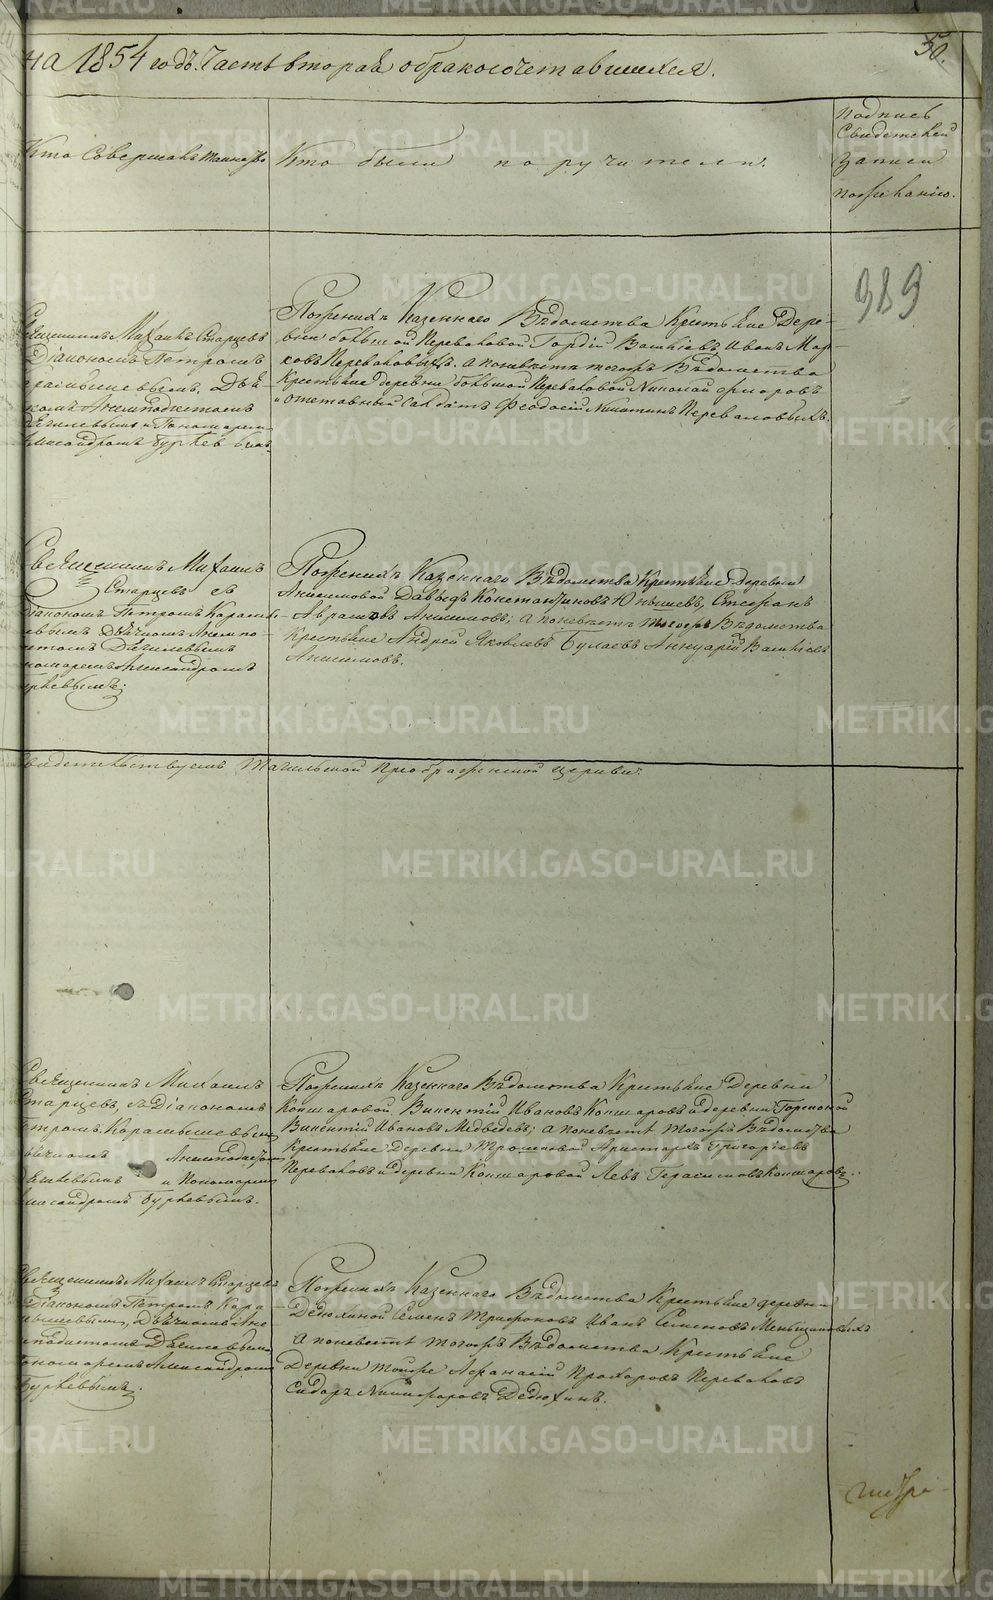 на 1854 годъ. Часть вторая о бракосочетавшихся.
50.
Кто совершалъ таинство
Кто были поручители.
Подпись
Свидетелей
записи
по желанію.
989
Священникъ Михаилъ Старцевъ
Діакономъ Петромъ
Карамышевымъ, Дья
комъ Анемподистомъ
Дягилевымъ и Пономаремъ
Александромъ Бурцевымъ
По женихѣ Казеннаго Вѣдомства Крестьяне Дере-
вни большой Переваловой Гордій Васильевъ Иванъ Мар-
ковъ Переваловыхъ. А по невѣсте тогожъ Вѣдомства
Крестьяне деревни большой Переваловой Николай
и отставный Салдатъ Феодосій Никитинъ Переваловыхъ.
Священникъ Михаилъ
Старцевъ съ
Діакономъ Петромъ Карамы-
шевымъ Дьячкомъ Анемпо-
дистомъ Дягилевымъ
Пономаремъ Александромъ
Бурцевымъ.
По женихѣ Казеннаго Вѣдомства Крестьяне Деревни
Анисимовой Давыдъ Константиновъ Юньшевъ, Стефанъ
Аврамовъ Анисимовъ; а по невѣсте тогожъ Вѣдомства
Крестьяне Андрей Яковлевъ Булаевъ Аннуарій Васильевъ
Анисимовъ.
свидетельствуемъ Тагильской Преображенской церкви:
Священникъ Михаилъ
Старцевъ, съ Діакономъ
Петромъ Карамышевымъ
Дьячкомъ Анемподистомъ
Дягилевымъ и Пономаремъ
Александромъ Бурцевымъ.
По женихѣ Казеннаго Вѣдомства Крестьяне Деревни
Кокшаровой Викентій Ивановъ Кокшаровъ и деревни
Викентій Ивановъ Медведевъ; а по невѣсте тогожъ Вѣдомства
Крестьяне Деревни Аристархъ Григорьевъ
Переваловъ и деревни Кокшаровой Левъ Герасимовъ Кокшаровъ.
Священникъ Михаилъ Старцевъ
съ Діакономъ Петромъ Кара
мышевымъ, Дьячкомъ Ане
мподистомъ Дягилевымъ
Пономаремъ Александромъ
Бурцевымъ.
По женихѣ Казеннаго Вѣдомства Крестьяне деревни
Дедюхиной Семенъ Трифоновъ Иванъ Семеновъ Меньшиковыхъ
А по невѣсте тогожъ Вѣдомства Крестьяне
Деревни тойже Афанасій Прохоровъ Переваловъ
Сидоръ Никифоровъ Дедюхинъ.
METRIKI.GASO-URAL.RU